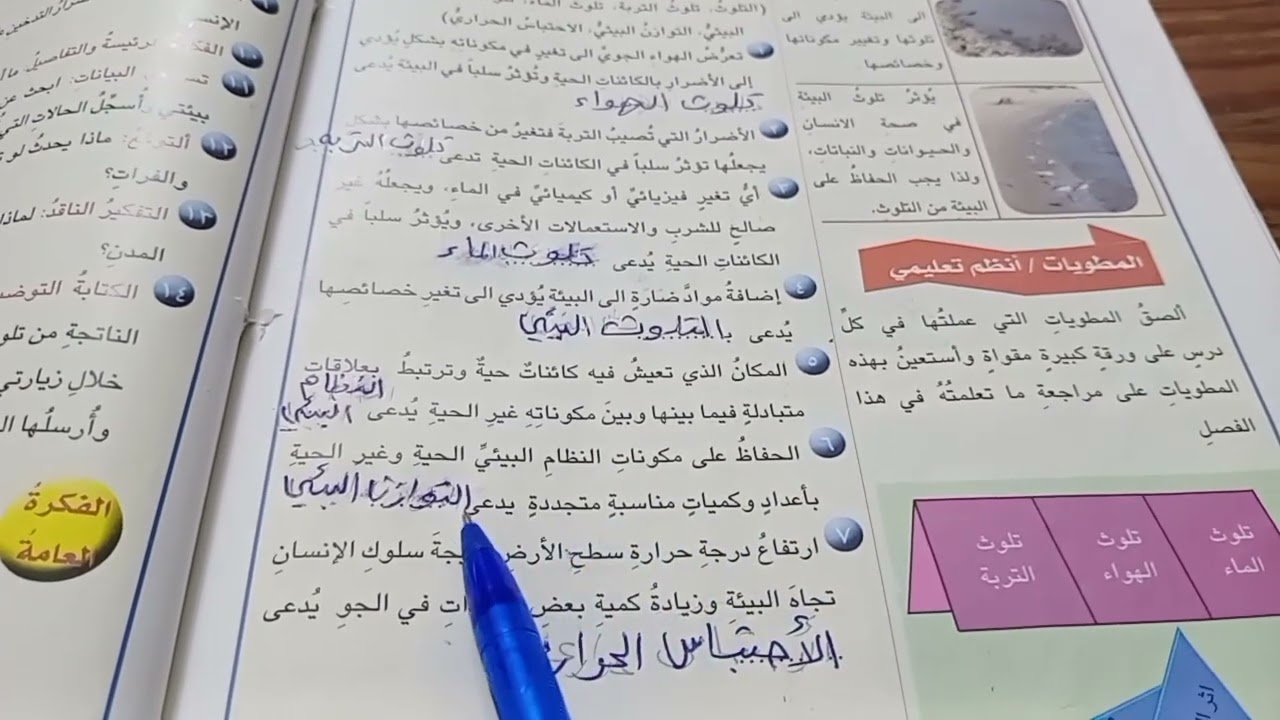 الى البيئة يؤدي الى
تلوثها وتغيير مكوناتها
وخصائصها
يُؤثرُ تلوثُ البيئة
في صحة الانسان
والحيوانات والنباتات،
ولذا يجب الحفاظُ على
البيئة من التلوث.
المطويات / أنظم تعليمي
ألصقُ المطوياتِ التي عملتُها في كلِّ
درسٍ على ورقةٍ كبيرةٍ مقواةٍ وأستعينُ بهذه
المطوياتِ على مراجعةِ ما تعلمتُهُ في هذا
الفصلِ
تلوث الماء
تلوث الهواء
تلوث التربة
(التلوثُ، تلوثُ التربة، تلوثُ الماء،
البيئيُّ، التوازنُ البيئيُّ، الاحتباسُ الحراريُّ)
١ تعرُّضُ الهواء الجويِّ الى تغيرٍ في مكوناته بشكلٍ يُؤدي
إلى الأضرارِ بالكائنات الحيةِ وتُؤثرُ سلباً في البيئة يُدعى
تلوث الهواء
٢ الأضرارُ التي تُصيبُ التربةَ فتغيرُ من خصائصها بشكلٍ
يجعلُها تؤثرُ سلباً في الكائناتِ الحيةِ تدعى تلوث التربة
٣ أيُّ تغيرٍ فيزيائيٍّ أو كيميائيٍّ في الماءِ، ويجعلُهُ غير
صالحٍ للشربِ والاستعمالات الأخرى، ويُؤثرُ سلباً في
الكائناتِ الحيةِ يُدعى تلوث الماء
٤ إضافةُ موادَّ ضارَةٍ الى البيئة يُؤدي الى تغيرِ خصائصِها
يُدعى بالتلوث البيئي
٥ المكانُ الذي تعيشُ فيه كائناتٌ حيةٌ وترتبطُ بعلاقاتٍ
متبادلةٍ فيما بينها وبينَ مكوناتِهِ غيرِ الحيةِ يُدعى النظام البيئي
٦ الحفاظُ على مكوناتِ النظامِ البيئيِّ الحيةِ وغيرِ الحيةِ
بأعدادٍ وكمياتٍ مناسبةٍ متجددةٍ يدعى التوازن البيئي
٧ ارتفاعُ درجةِ حرارةِ سطحِ الأرضِ سلوكِ الإنسانِ
تجاهَ البيئةِ وزيادةُ كميةِ بعضِ في الجو يُدعى
الأحتباس الحراري
الإنس
١٠
١١
بيئتي وأُسجِّلُ الحالاتِ التي
١٢ ماذا يحدثُ لو
والفراتِ؟
١٣ التفكيرُ الناقدُ: لماذا
المدنِ؟
١٤ الكتابةُ
الناتجةِ من
خلالِ زيارتي
وأُرسلُها
الفكرةُ
العامةُ